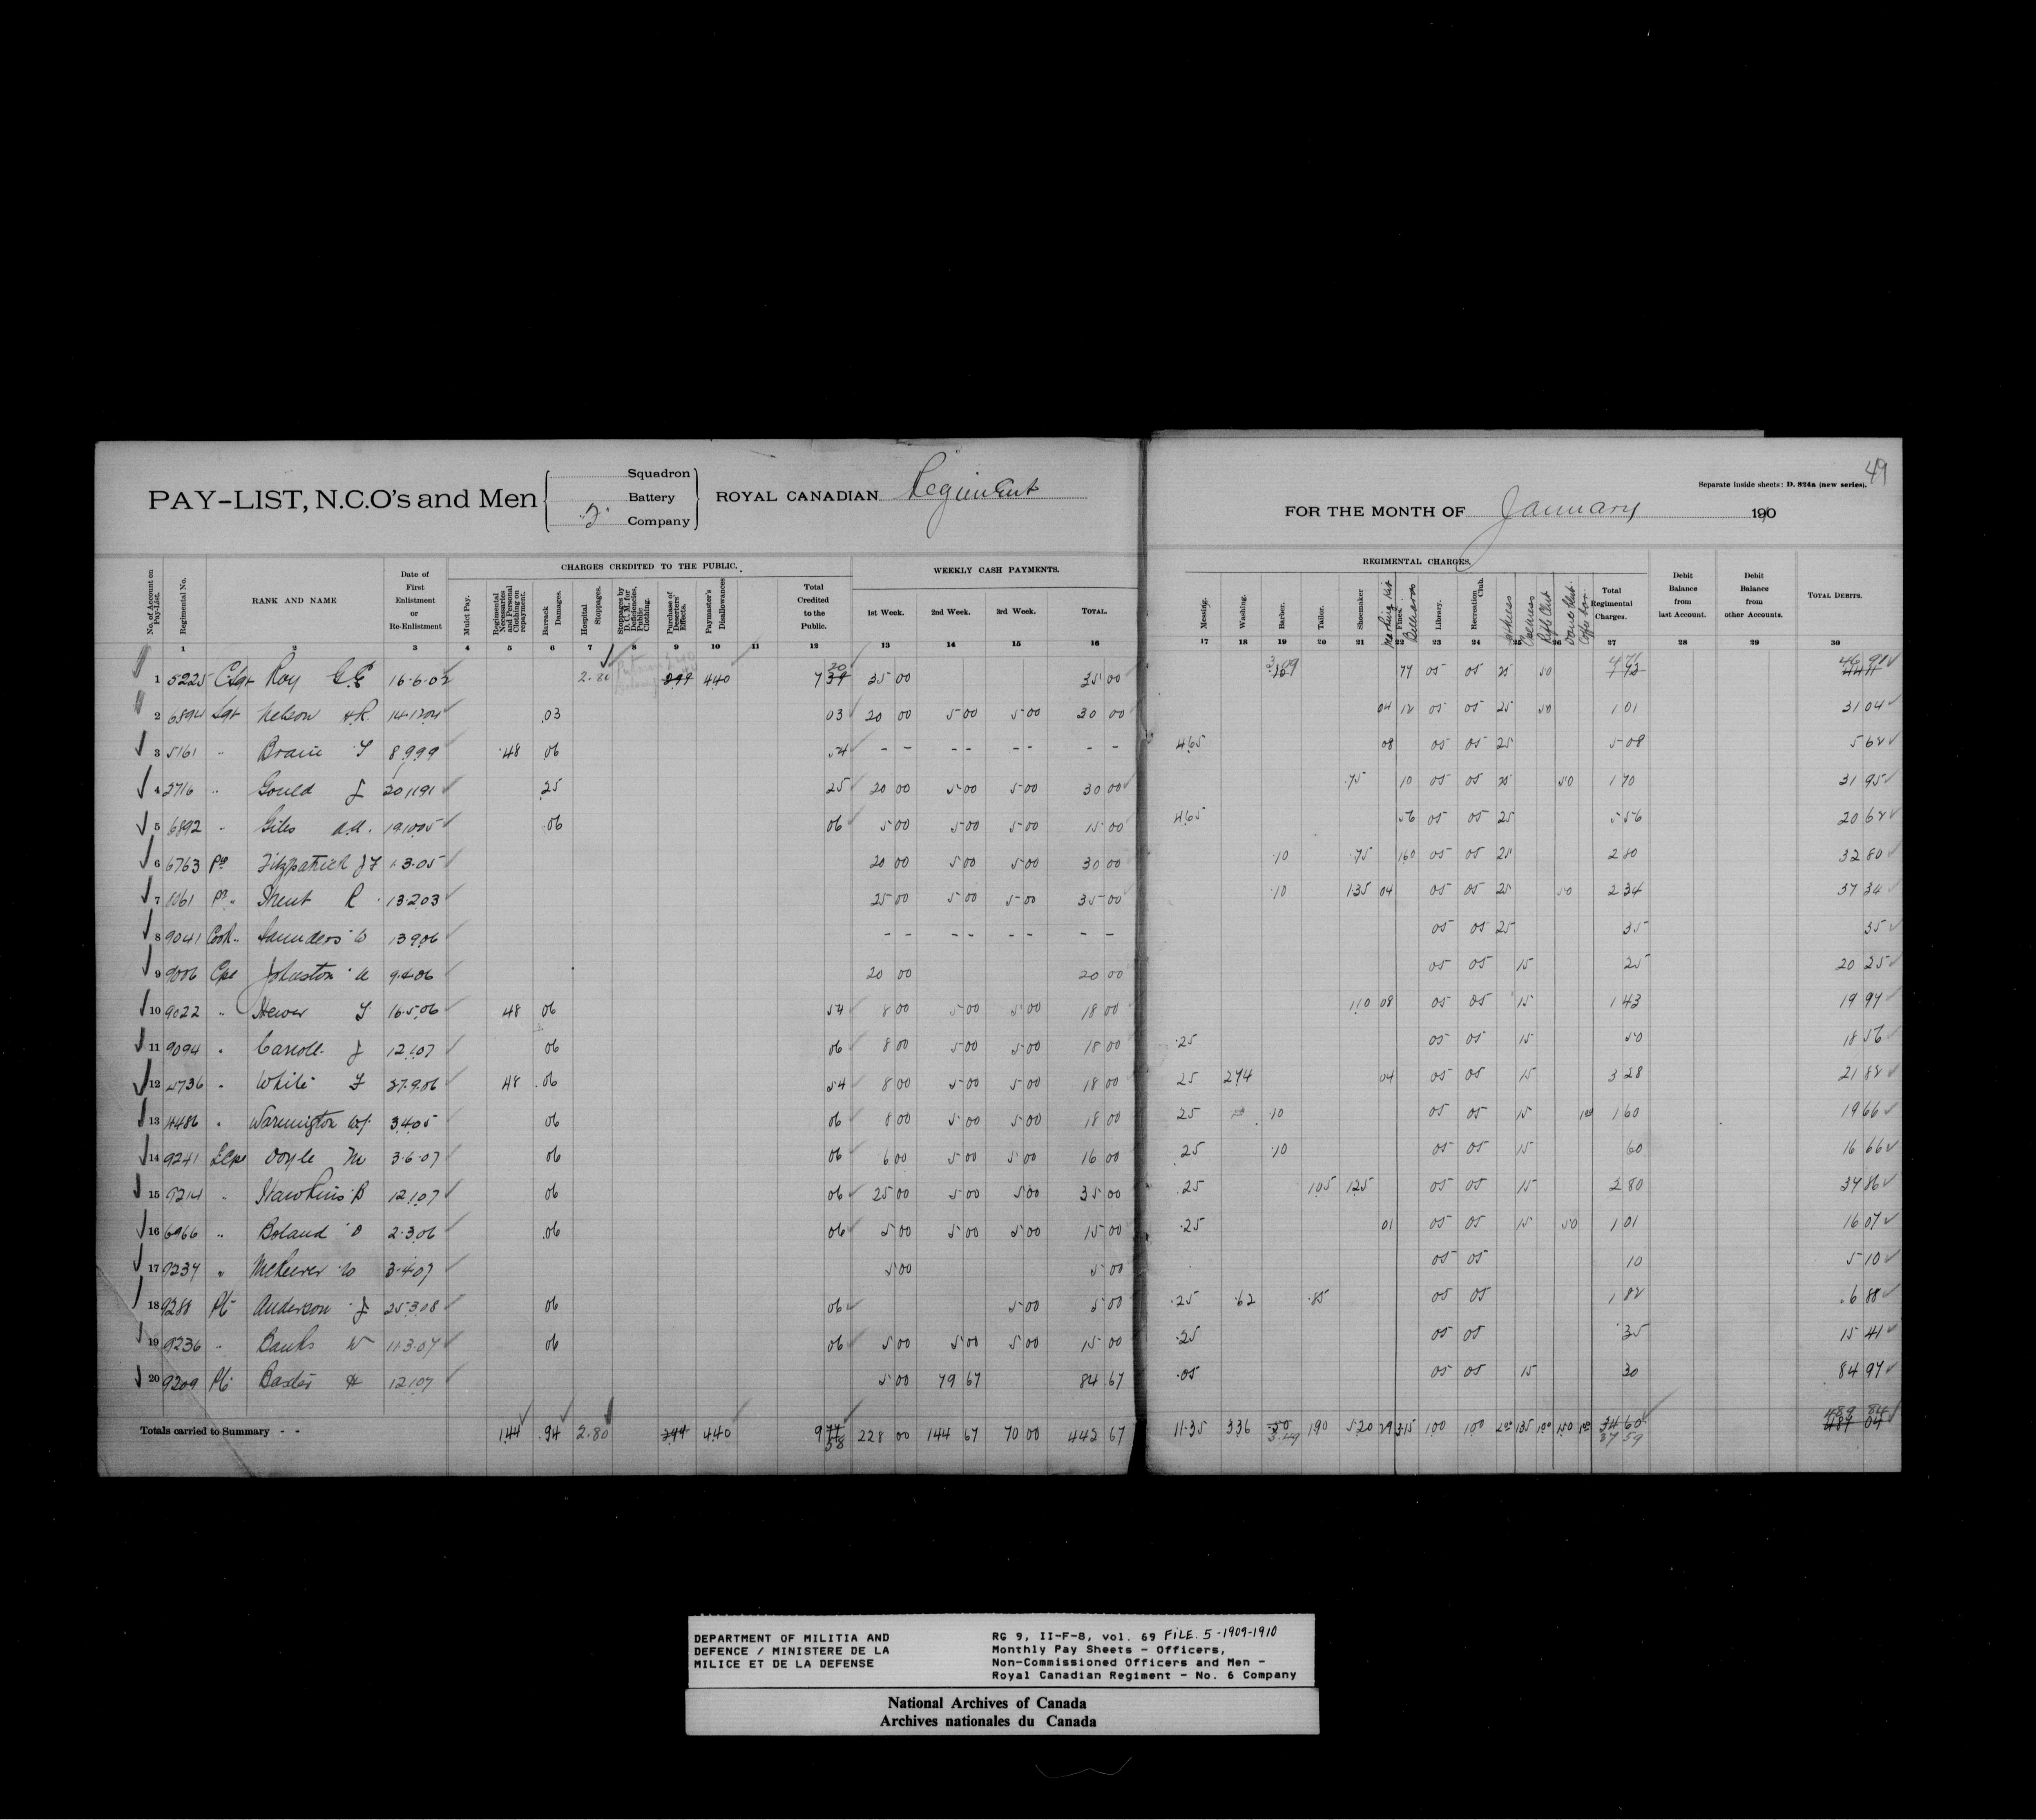 49
Squadron
Battery
PAY-LIST, N.C.O's and Men "D" Company ROYAL CANADIAN Regiment
Separate inside sheets: D. 824a (new series).
FOR THE MONTH OF January 1910
No. of Account on Pay-List. Regimental No. RANK AND NAME Date of First Enlistment or Re-Enlistment
CHARGES CREDITED TO THE PUBLIC.
Mulct Pay. Regimental Necessaries and Personal Clothing on repayment. Barrack Damages. Hospital Stoppages. Stoppages by D. C. M. for Deficiencies, Public Clothing. Purchase of Deserters' Effects. Paymaster's Disallowances Total Credited to the Public.
WEEKLY CASH PAYMENTS.
1st Week. 2nd Week. 3rd Week. TOTAL.
REGIMENTAL CHARGES.
Messing. Washing. Barber. Tailor. Shoemaker Marking Kit Fines Billiards Library. Recreation Club. Rifle Club Total Regimental Charges.
Debit Balance from last Account. Debit Balance from other Accounts. TOTAL DEBITS.
1 2 3 4 5 6 7 8 9 10 11 12 13 14 15 16 17 18 19 20 21 22 23 24 25 26 27 28 29 30
1 5225 C.Sgt Roy 16.6.02 2.80 4 40 35 00 35 00 3.09 77 05 05 25 50 4 71 46 91
2 6894 Sgt Nelson H.R. .03 03 20 00 5 00 5 00 30 00 04 12 05 05 25 50 1 01 31 04
3 5161 " Brain 8.9.99 .48 06 54 - - - - - - - - 4 65 08 05 05 25 5 08 5 62
4 2716 " Gould J 20.11.91 25 25 20 00 5 00 5 00 30 00 .75 10 05 05 25 50 1 70 31 95
5 6892 " Giles A.A. 19.10.05 06 06 5 00 5 00 5 00 15 00 4 65 56 05 05 25 5 56 20 62
6 6763 Fitzpatrick 1.3.05 20 00 5 00 5 00 30 00 .10 .75 1 60 05 05 25 2 80 32 80
7 R 13.2.03 25 00 5 00 5 00 35 00 .10 1 35 04 05 05 25 50 2 34 37 34
8 9041 Cook " Saunders W 13.9.06 - - - - - - - - 05 05 25 35 35
9 9006 Cpl Johnston A 9.4.06 20 00 20 00 05 05 15 25 20 25
10 9022 " Hewer 16.5.06 48 06 54 8 00 5 00 5 00 18 00 1 10 08 05 05 15 1 43 19 97
11 9094 " Carroll J 12.1.07 06 06 8 00 5 00 5 00 18 00 .25 05 05 15 50 18 56
12 " White F 27.9.06 48 .06 54 8 00 5 00 5 00 18 00 25 2 74 04 05 05 15 3 28 21 82
13 4486 " Warmington W.J. 3.4.05 06 06 8 00 5 00 5 00 18 00 25 .10 05 05 15 1 00 1 60 19 66
14 9241 LCpl Doyle M 3.6.07 06 06 6 00 5 00 5 00 16 00 25 .10 05 05 15 60 16 66
15 9214 " Hawkins B 12.1.07 06 06 25 00 5 00 5 00 35 00 .25 1 05 1 25 05 05 15 2 80
16 6966 " Boland D 2.3.06 .06 06 5 00 5 00 5 00 15 00 .25 01 05 05 15 50 1 01 16 07
17 9237 " McKeever W 3.4.07 5 00 5 00 05 05 10 5 10
18 9288 Pte Anderson J 25.3.08 06 06 5 00 5 00 .25 .62 .85 05 05 1 82 6 88
19 9236 " Banks W 11.3.07 06 06 5 00 5 00 5 00 15 00 .25 05 05 35 15 41
20 9209 Pte Baxter H 12.1.07 5 00 79 67 84 67 .05 05 05 15 30 84 97
Totals carried to Summary - - 1 44 .94 2.80 4 40 9 58 228 00 144 67 70 00 442 67 11.35 3 36 3.49 1 90 5 20 29 3 15 1 00 1 00 2 00 1 35 1 00 1 50 1 00 37 59 489 84
DEPARTMENT OF MILITIA AND
DEFENCE / MINISTERE DE LA
MILICE ET DE LA DEFENSE
RG 9, II-F-8, vol. 69 FILE. 5 -1909-1910
Monthly Pay Sheets - Officers,
Non-Commissioned Officers and Men -
Royal Canadian Regiment - No. 6 Company
National Archives of Canada
Archives nationales du Canada